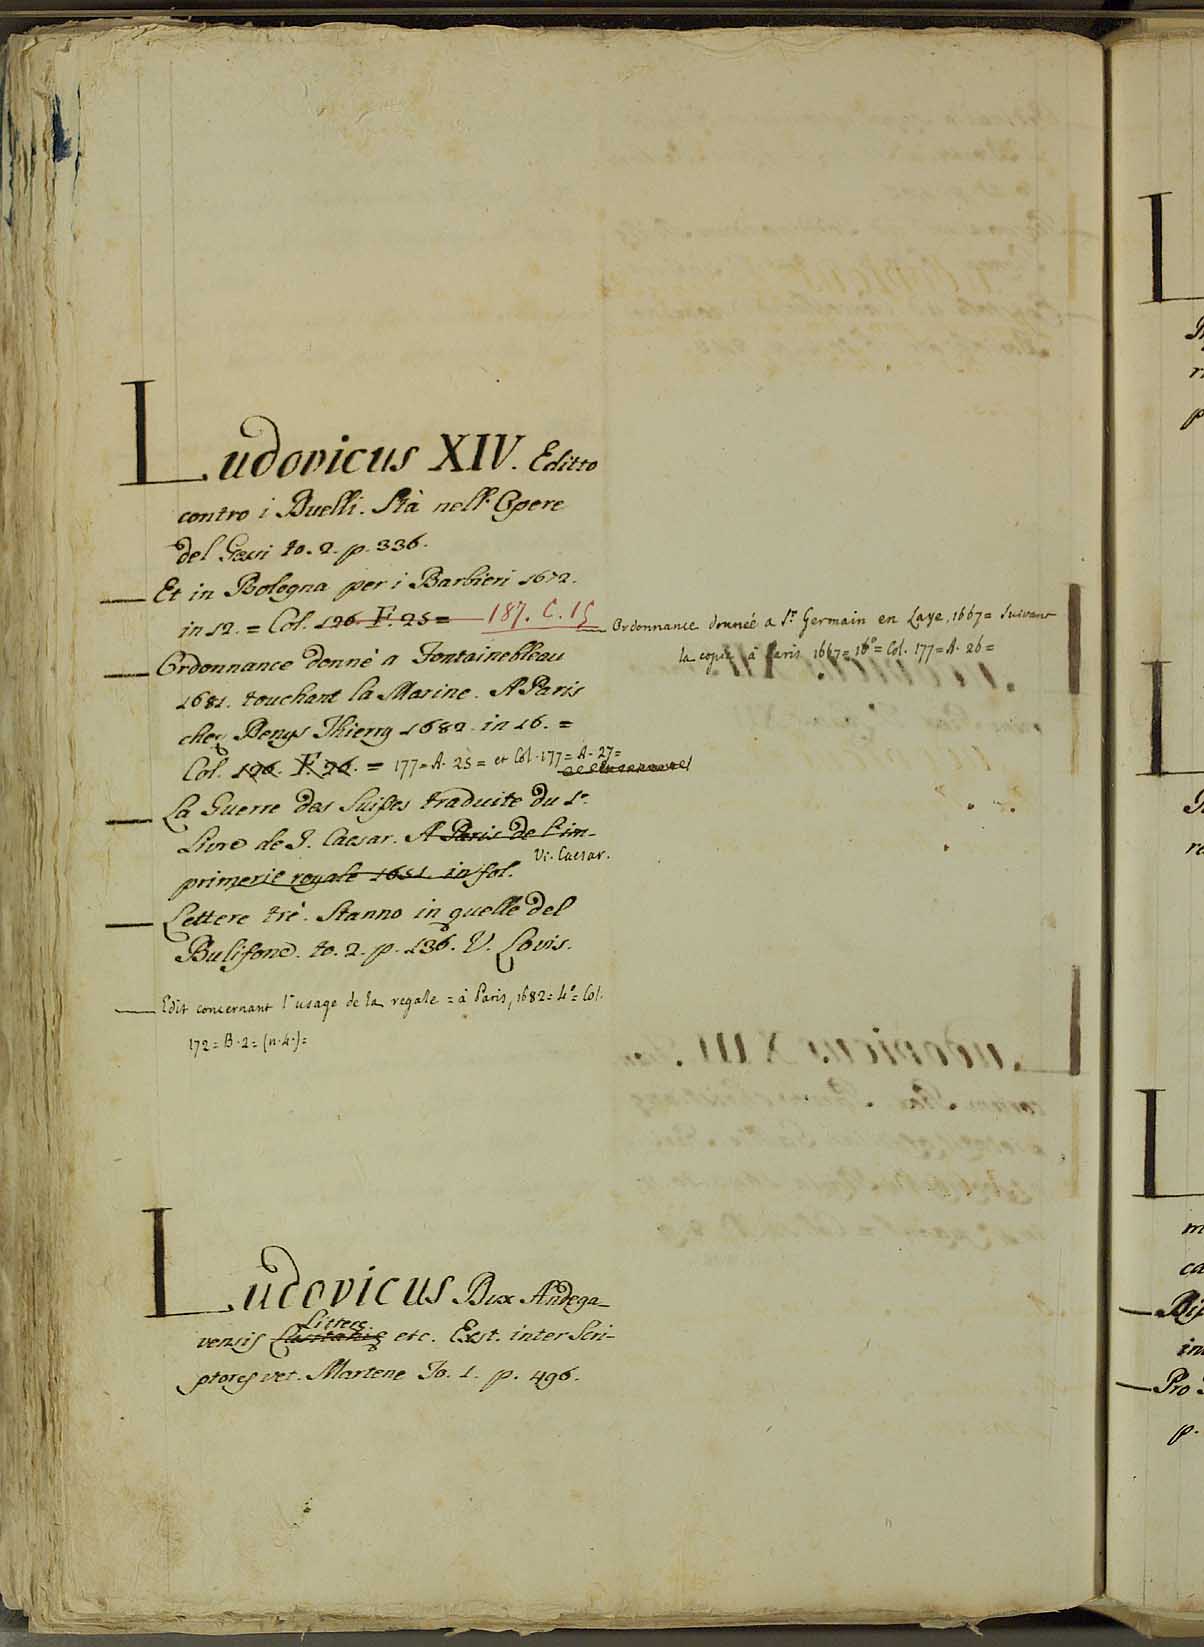 Ludovicus XIV. Editto
contro i Duelli. Stà nell'Opere
del Gessi to. 2. p. 336.
Et in Bologna per i Barbieri 1672.
in 12. = Col. 126. F. 25 = 187. C. 15
Ordonnance donné a Fontainebleau
1681. touchant la Marine. A Paris
chez Denys Thierry 1682. in 16. =
Col. 126. F. 26. = 177 = A. 25 = et Col. 177 = A. 27 =
La Guerre des Suisses traduite du 1.r
Livre de J. Caesar. A Paris de l'im-
primerie royale 1651. in fol. Vi. Caesar.
Lettere trè. Stanno in quelle del
Bulifone. to. 2. p. 136. V. Lovis.
Edit concernant l'usage de la regale = à Paris, 1682 = 4.º = Col.
172 = B. 2 = (n. 4.) =
Ordonnance donnée a S.t Germain en Laye, 1667 = Suivant
la copie à Paris 1667 = 16.º = Col. 177 = A. 26 =
Ludovicus Dux Andega-
vensis Litterę etc. Exst. inter Scri-
ptores vet. Martene To. 1. p. 496.